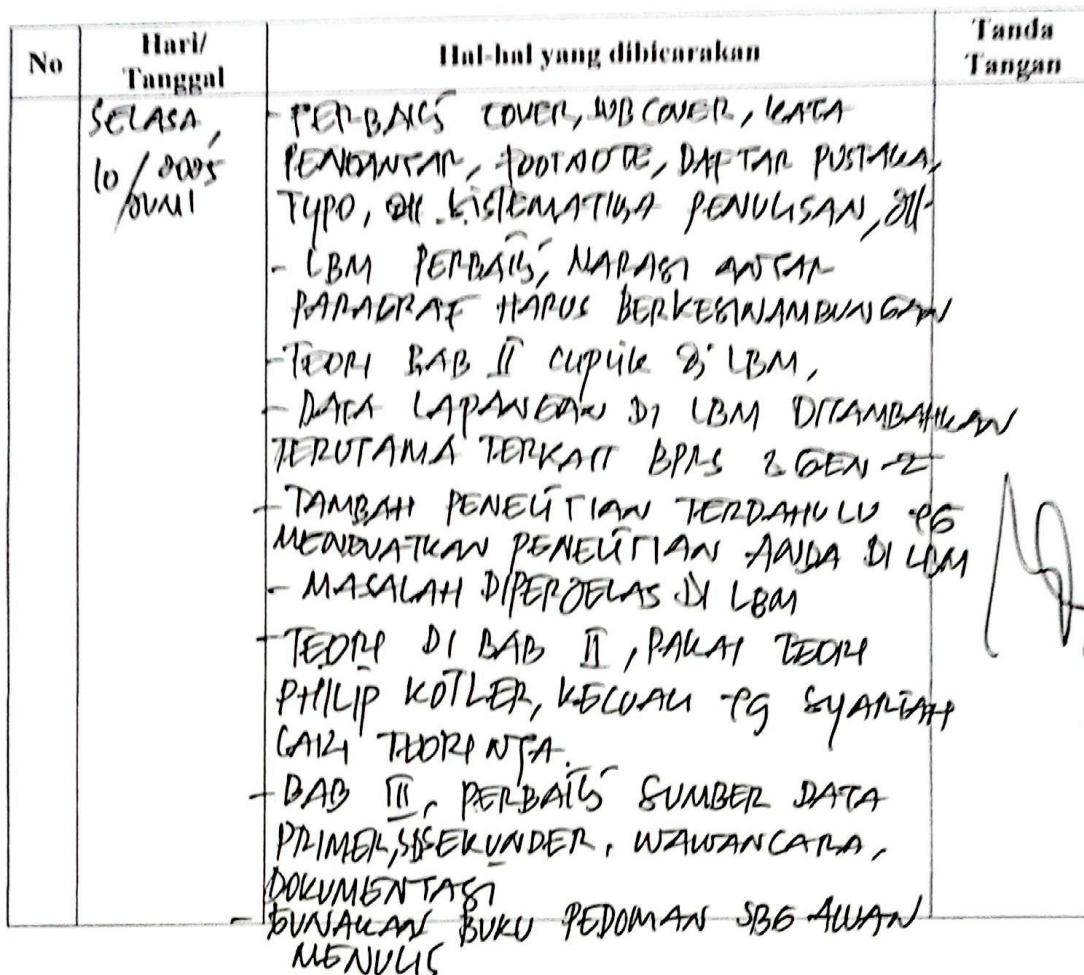 No
Hari/
Tanggal
Hal-hal yang dibicarakan
Tanda
Tangan
SELASA,
10/2025
JUNI
- PERBAIKI COVER, SUB COVER, KATA
PENGANTAR, FOOTNOTE, DAFTAR PUSTAKA,
TYPO, SISTEMATIKA PENULISAN, dll
- LBM PERBAIKI, NARASI ANTAR
PARAGRAF HARUS BERKESINAMBUNGAN
- TEORI BAB II CUPLIK di LBM,
- DATA LAPANGAN DI LBM DITAMBAHKAN
TERUTAMA TERKAIT BPRS & GEN-Z
- TAMBAH PENELITIAN TERDAHULU yg
MENGUATKAN PENELITIAN ANDA DI LBM
- MASALAH DIPERJELAS DI LBM
- TEORI DI BAB II, PAKAI TEORI
PHILIP KOTLER, KECUALI yg SYARIAH
CARI TEORINYA.
- BAB III, PERBAIKI SUMBER DATA
PRIMER, SEKUNDER, WAWANCARA,
DOKUMENTASI
- GUNAKAN BUKU PEDOMAN SBG ACUAN
MENULIS